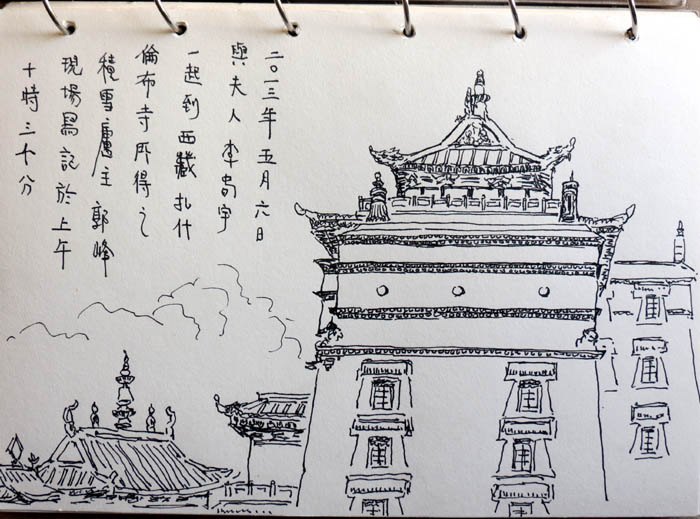 二〇一三年五月六日
與夫人李尚宇
一起到西藏扎什
倫布寺所得之
積雪廬主郭峰
現場寫記於上午
十時三十分